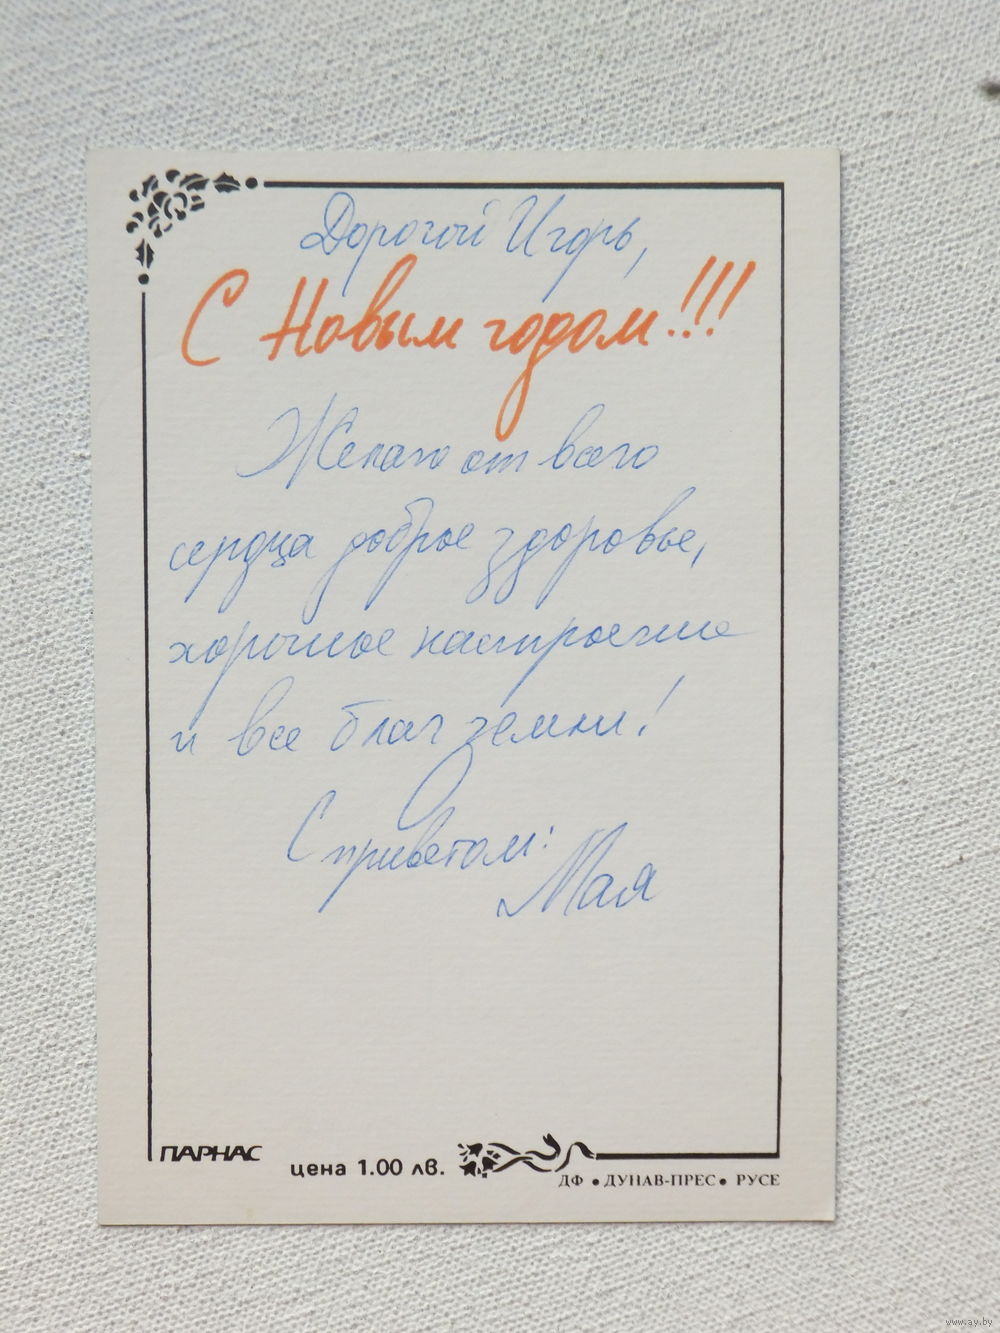 Дорогой Игорь,
С Новым годом!!!
Желаю от всего
сердца доброе здоровье,
хорошое настроение
и все благ земни!
С приветом:
Мая
ПАРНАС
цена 1.00 лв.
ДФ • ДУНАВ-ПРЕС • РУСЕ
www.ay.by